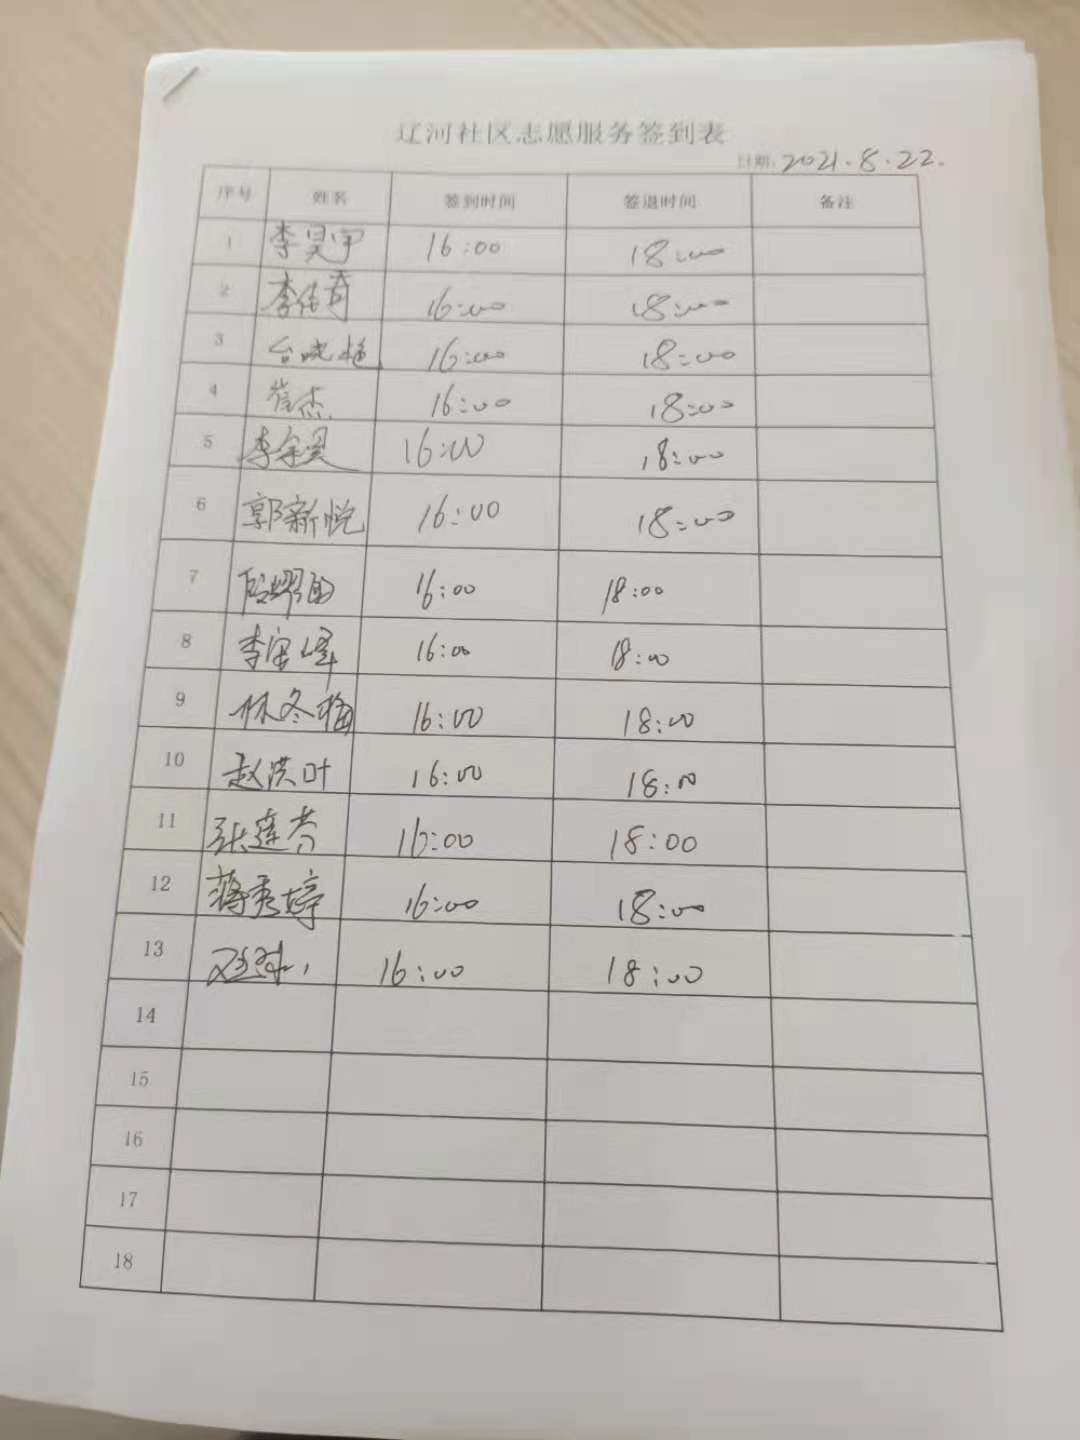 辽河社区志愿服务签到表
日期: 2021.8.22.
序号 姓名 签到时间 签退时间 备注
1 李昊宇 16:00 18:00
2 李传奇 16:00 18:00
3 16:00 18:00
4 崔杰 16:00 18:00
5 李宗昊 16:00 18:00
6 郭新悦 16:00 18:00
7 16:00 18:00
8 李宝峰 16:00 18:00
9 林冬梅 16:00 18:00
10 赵洪叶 16:00 18:00
11 张莲芳 16:00 18:00
12 蒋秀婷 16:00 18:00
13 16:00 18:00
14
15
16
17
18